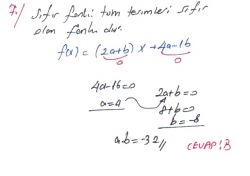 7.) Sıfır fonk: tüm terimleri sıfır
olan fonk. dur.
f(x) = (2a+b)x + 4a-16
0 0
4a-16=0
a=4
2a+b=0
8+b=0
b=-8
a.b=-32//
CEVAP:B